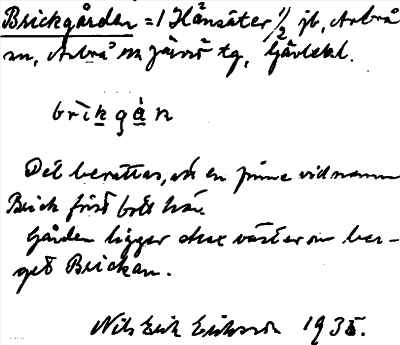 Brickgården = 1 Hånsäter 1/2 jb, Arbrå
sn, Arbrå och Järvsö tg, Gävlebl.
brikgàn
Det berättas, att en finne vid namn
Brick först bott här.
Gården ligger strax väster om ber-
get Brickan.
Nils Erik Eriksson 1935.